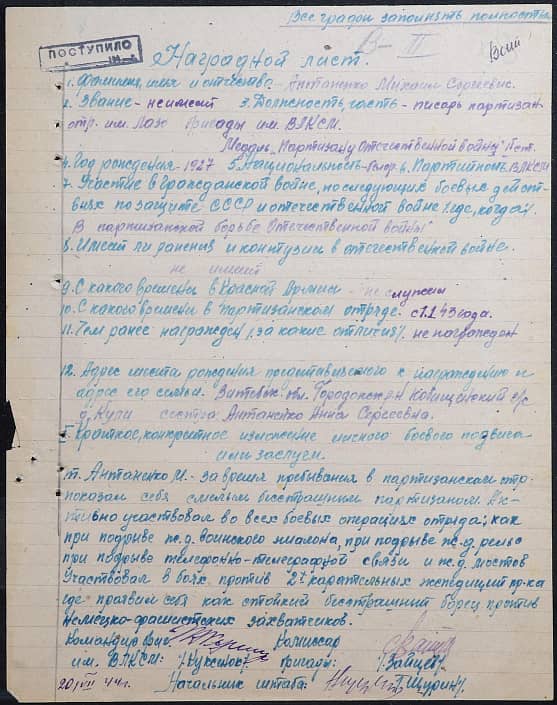 Все графы заполнять полностью
ПОСТУПИЛО
В-III
Наградной лист.
1. Фамилия, имя и отчество - Антаненко Михаил Сергеевис.
2. Звание - не имеет 3. Должность, часть - писарь партизан
отр. им. Лазо бригады им. ВЛКСМ.
Медаль „Партизану Отечественной войны"
4. Год рождения - 1927 5. Национальность - 6. Партийность ВЛКСМ
7. Участие в гражданской войне, последующих боевых дейст-
виях по защите СССР и отечественной войне где, когда
В партизанской борьбе Отечественной войны
8. Имеет ли ранения и контузии в отечественной войне.
не имеет
9. С какого времени в Красной Армии - не служил
10. С какого времени в партизанском отряде. с 1.1 43 года.
11. Чем ранее награжден /за какие отличия/. не награжден
12. Адрес места рождения представляемого к награждению и
адрес его семьи. Витебск. обл. Городокск
д. Кули сестра Антаненко Анна Сергеевна.
Краткое, конкретное изложение личного боевого подвига
или заслуги.
т. Антаненко М. - за время пребывания в партизанском отр.
показал себя смелым бесстрашным партизаном. Ак-
тивно участвовал во всех боевых операциях отряда; как
при подрыве ж.д. воинского эшалона, при подрыве ж-д. рельс
при подрыве телефонно-телеграфной связи и ж.д. мостов
Участвовал в боях против 2х карательных экспедиций пр-ка
где проявил себя как стойкий бесстрашный борец против
немецко-фашистских захватчиков.
Командир Комиссар
им. ВЛКСМ: /Куксенок/ бригады: /Зайцев/
20/VII 44г. Начальник штаба: /Щурин/.